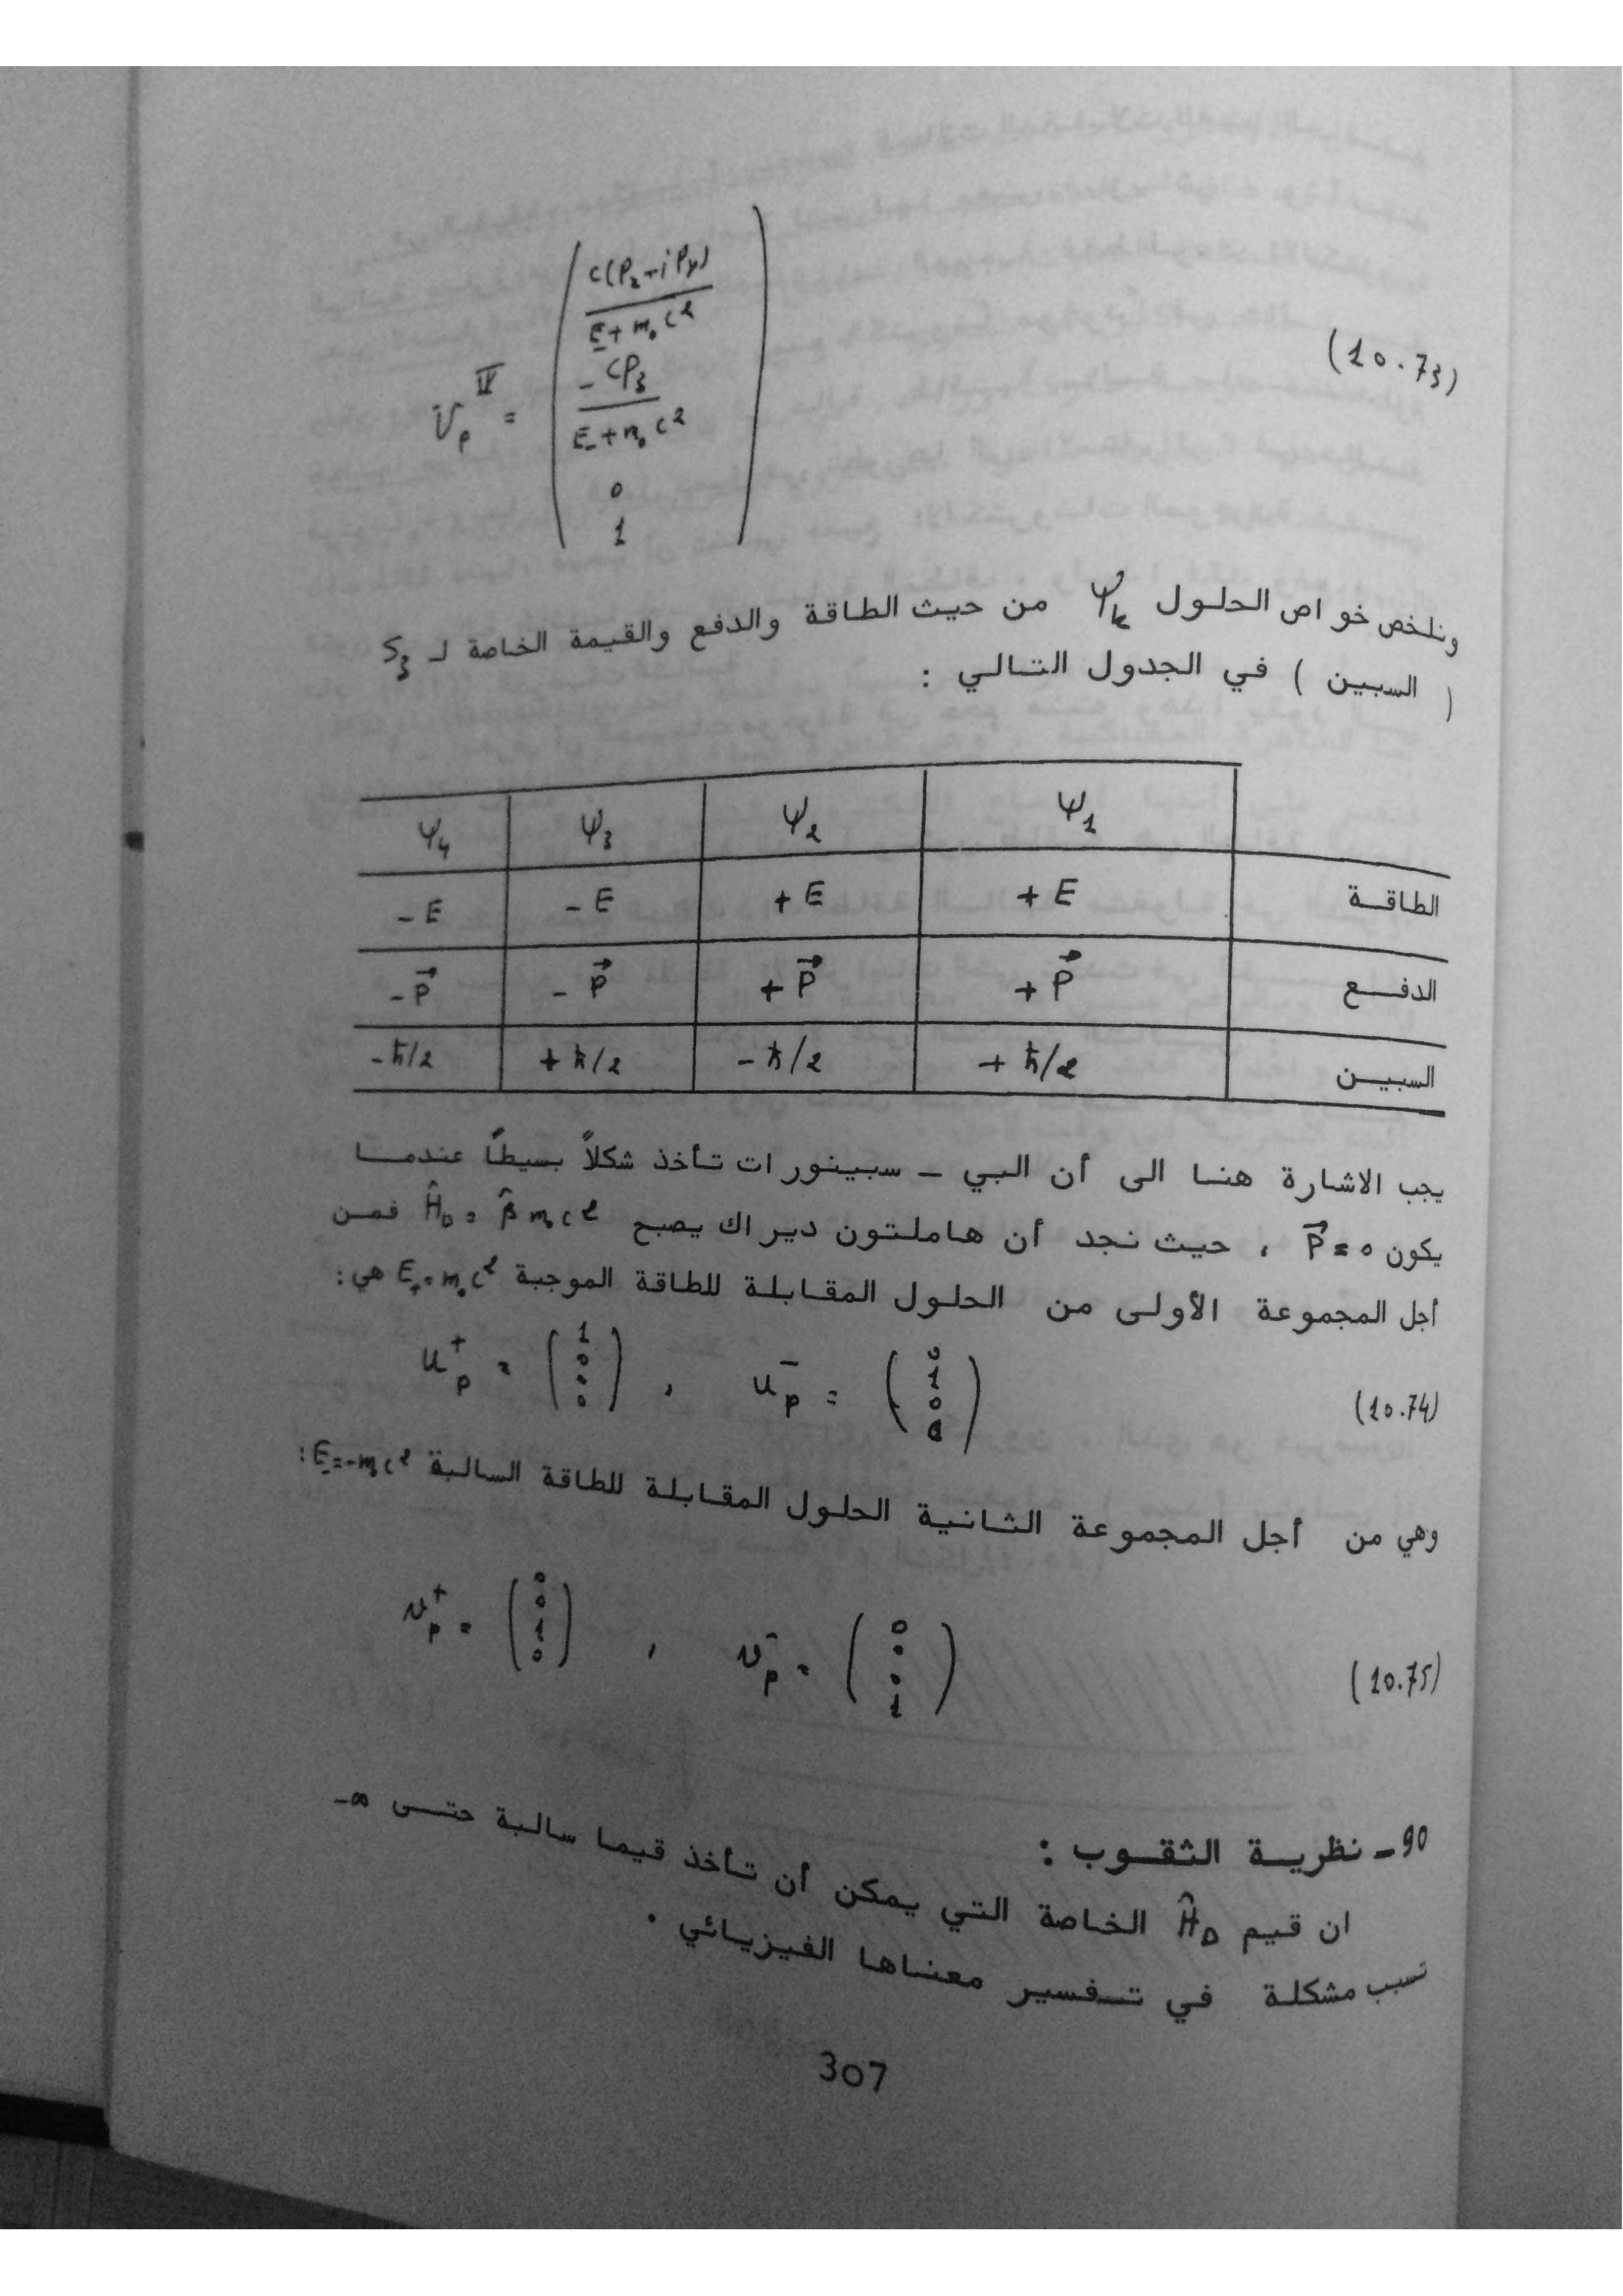 c(P₂-iPy)
E+m₀c²
-cP₃
E+m₀c²
0
1
υₚ^IV =
(10.73)
ونلخص خواص الحلول Ψₖ من حيث الطاقة والدفع والقيمة الخاصة لـ S₃
( السبين ) في الجدول التالي :
Ψ₁ Ψ₂ Ψ₃ Ψ₄
الطاقة +E +E -E -E
الدفع +P⃗ +P⃗ -P⃗ -P⃗
السبين +ħ/2 -ħ/2 +ħ/2 -ħ/2
يجب الاشارة هنا الى أن البي – سبينورات تأخذ شكلاً بسيطاً عندما
يكون P⃗=0 ، حيث نجد أن هاملتون ديراك يصبح Ĥ_D = β̂ m₀c² فمن
أجل المجموعة الأولى من الحلول المقابلة للطاقة الموجبة E₊=m₀c² هي:
uₚ⁺ = (1 0 0 0) , uₚ⁻ = (0 1 0 0) (10.74)
وهي من أجل المجموعة الثانية الحلول المقابلة للطاقة السالبة E₋=-m₀c² :
υₚ⁺ = (0 0 1 0) , υₚ⁻ = (0 0 0 1) (10.75)
90- نظرية الثقوب :
ان قيم Ĥ_D الخاصة التي يمكن أن تأخذ قيما سالبة حتى ∞-
تسبب مشكلة في تفسير معناها الفيزيائي .
307